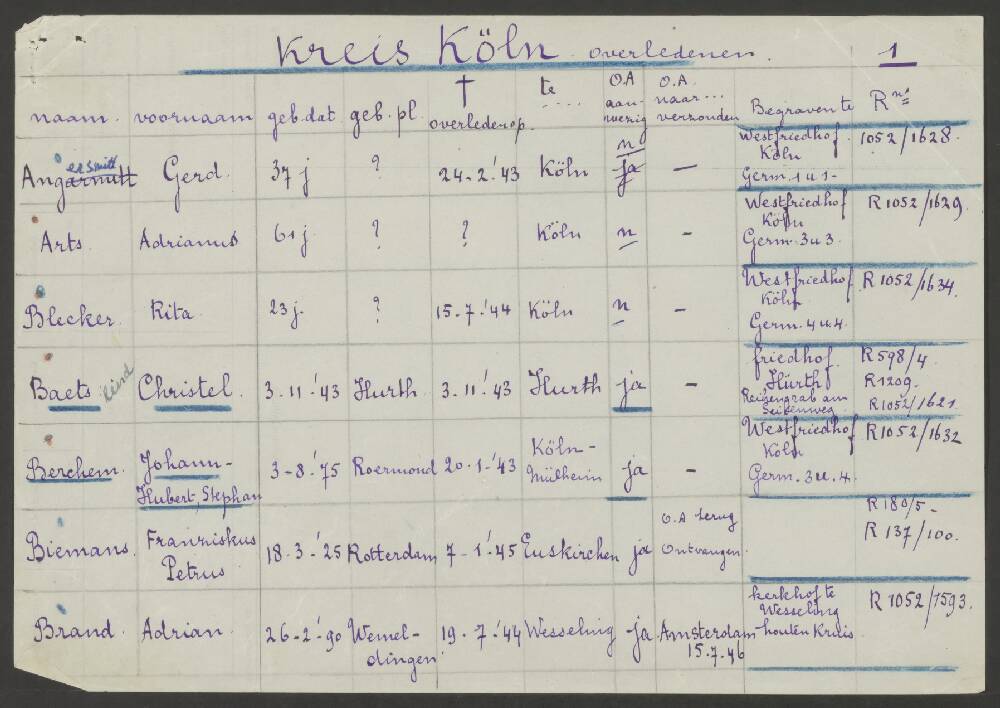 Kreis Köln overledenen. 1
naam. voornaam geb.dat geb.pl. † overleden op. te .... O.A aanwezig O.A. naar... verzonden Begraven te R nrs
Angarmitt ersmitt Gerd. 37 j ? 24-2.'43 Köln ja n – Westfriedhof Köln Germ. 1 u 1- 1052/1628.
Arts. Adrianus 61 j. ? ? Köln n – Westfriedhof Köln Germ. 3 u 3. R 1052/1629.
Blecker. Rita. 23 j. ? 15-7.'44 Köln n – Westfriedhof Köln Germ. 4 u. 4. R 1052/1634.
Baets kind Christel. 3-11-'43 Hurth. 3-11-'43 Hurth ja – friedhof Hürth Reihengrab am R 598/4. R 1209. R 1052/1621.
Berchem. Johann-Hubert, Stephan 3-8-'75 Roermond 20-1-'43 Köln-Mülheim ja – Westfriedhof Köln Germ. 3 u. 4. R 1052/1632
Biemans. Franziskus Petrus 18-3-'25 Rotterdam 7-1-'45 Euskirchen ja O.A terug ontvangen. R 180/5- R 137/100.
Brand. Adrian. 26-2-'90 Wemeldingen 19-7-'44 Wesseling ja Amsterdam 15-7-46 kerkhof te Wesseling houten Kruis. R 1052/1593.